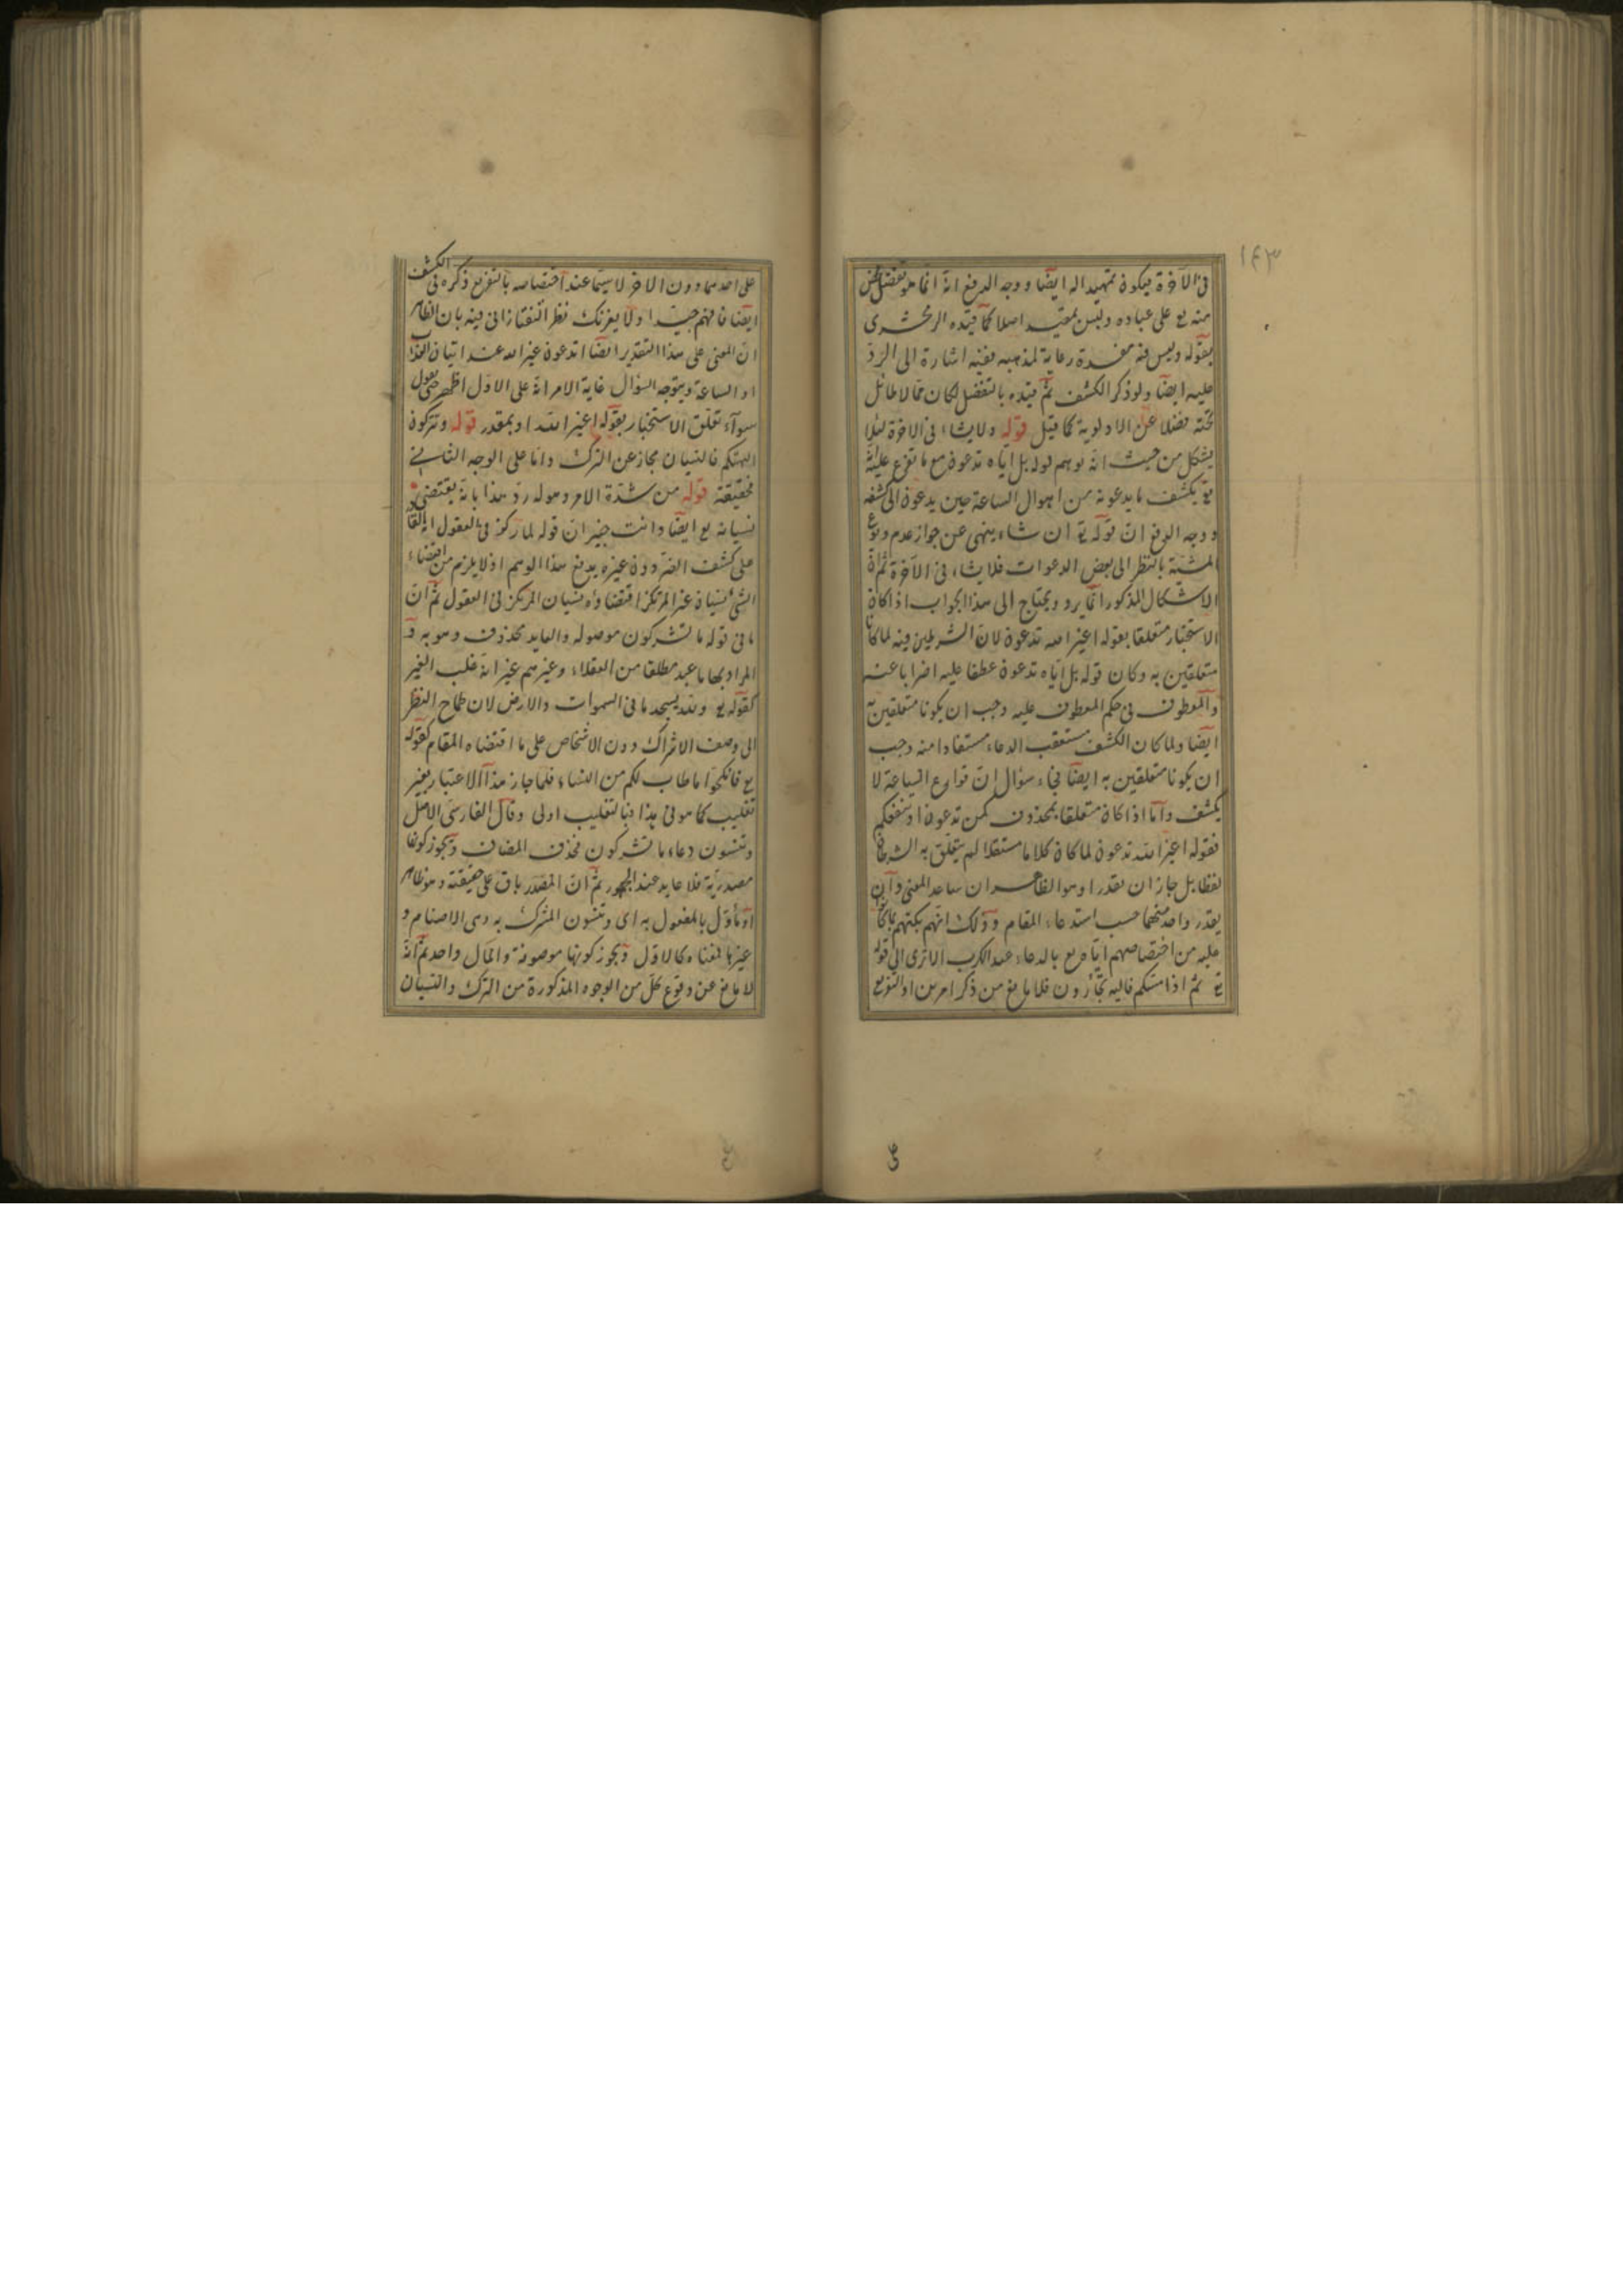 ١٤٣
فى الآخرة فيكون تمهيدا له ايضا ووجه الدفع انه انما هو تفضل محض
منه تع على عباده وليس بمقيد اصلا كما قيده الزمخشرى
بقوله وليس فيه مفسدة رعاية لمذهبه ففيه اشارة الى الرد
عليه ايضا ولو ذكر الكشف ثم قيده بالتفضل لكان مما لا طائل
تحته فضلا عن الاولوية كما قيل قوله ولا يشاء فى الاخرة لئلا
يشكل من حيث انه يوهم قوله بل اياه تدعون مع ما تفرع عليه انه
تع يكشف ما يدعونه من اهوال الساعة حين يدعون الى كشفه
ووجه الدفع ان قوله تع ان شاء ينهى عن جواز عدم وقوع
المشية بالنظر الى بعض الدعوات فلا يشاء فى الآخرة ثم ان
الاشكال المذكور انما يرد ويحتاج الى هذا الجواب اذا كان
الاستخبار متعلقا بقوله اغير الله تدعون لان الشرطين فيه لما كانا
متعلقين به وكان قوله بل اياه تدعون عطفا عليه اضرابا عنه
والمعطوف فى حكم المعطوف عليه وجب ان يكونا متعلقين به
ايضا ولما كان الكشف مستعقب الدعاء مستفادا منه وجب
ان يكونا متعلقين به ايضا فجاء سؤال ان قوارع الساعة لا
يكشف واما اذا كان متعلقا بمحذوف كمن تدعون او ينفعكم
فقوله اغير الله تدعون لما كان كلاما مستقلا لم يتعلق به الشرطان
لفظا بل جاز ان يقدرا وهو الظاهر ان ساعد المعنى وان
يقدر واحد منهما حسب استدعاء المقام وذلك انهم بكتهم بما كانوا
عليه من اختصاصهم اياه تع بالدعاء عند الكرب الا ترى الى قوله
تع ثم اذا مسكم فاليه تجأرون فلا مانع من ذكر امرين او التفريع
على احدهما دون الاخر لا سيما عند اختصاصه بالتفريع ذكره فى الكشف
ايضا فافهم جيدا ولا يغرنك نظر التفتازانى فيه بان الظاهر
ان المعنى على هذا التقدير ايضا اتدعون غير الله عند اتيان العذاب
او الساعة ويتوجه السؤال غاية الامر انه على الاول اظهر حتى يعول
سواء تعلق الاستخبار بقوله اغير الله او بمقدر قوله وتتركون
الهتكم فالنسيان مجاز عن الترك واما على الوجه الثانى
فحقيقة قوله من شدة الامر وهوله رد هذا بانه يقتضى
نسيانه تع ايضا وانت خبير ان قوله لما ركز فى العقول انه القادر
على كشف الضر دون غيره يدفع هذا الوهم اذ لا يلزم من اقتضاء
الشئ نسيان غير المرتكز اقتضاؤه نسيان المركز فى العقول ثم ان
ما فى قوله ما تشركون موصولة والعايد محذوف وهو به و
المراد بها ما عبد مطلقا من العقلاء وغيرهم غير انه غلب الغير
كقوله تع ولله يسجد ما فى السموات والارض لان طماح النظر
الى وصف الاشراك دون الاشخاص على ما اقتضاه المقام كقوله
تع فانكحوا ما طاب لكم من النساء فلما جاز هذا الاعتبار بغير
تغليب كما هو فى هذا فبالتغليب اولى وقال الفارسى الاصل
وتنسون دعاء ما تشركون فحذف المضاف ويجوز كونها
مصدرية فلا عايد عند الجمهور ثم ان المصدر باق على حقيقته وهو ظاهر
او مأول بالمفعول به اى وتنسون المشرك به وهى الاصنام و
غيرها فمعناه كالاول ويجوز كونها موصوفة والمآل واحد ثم انه
لا مانع عن وقوع كل من الوجوه المذكورة من الترك والنسيان